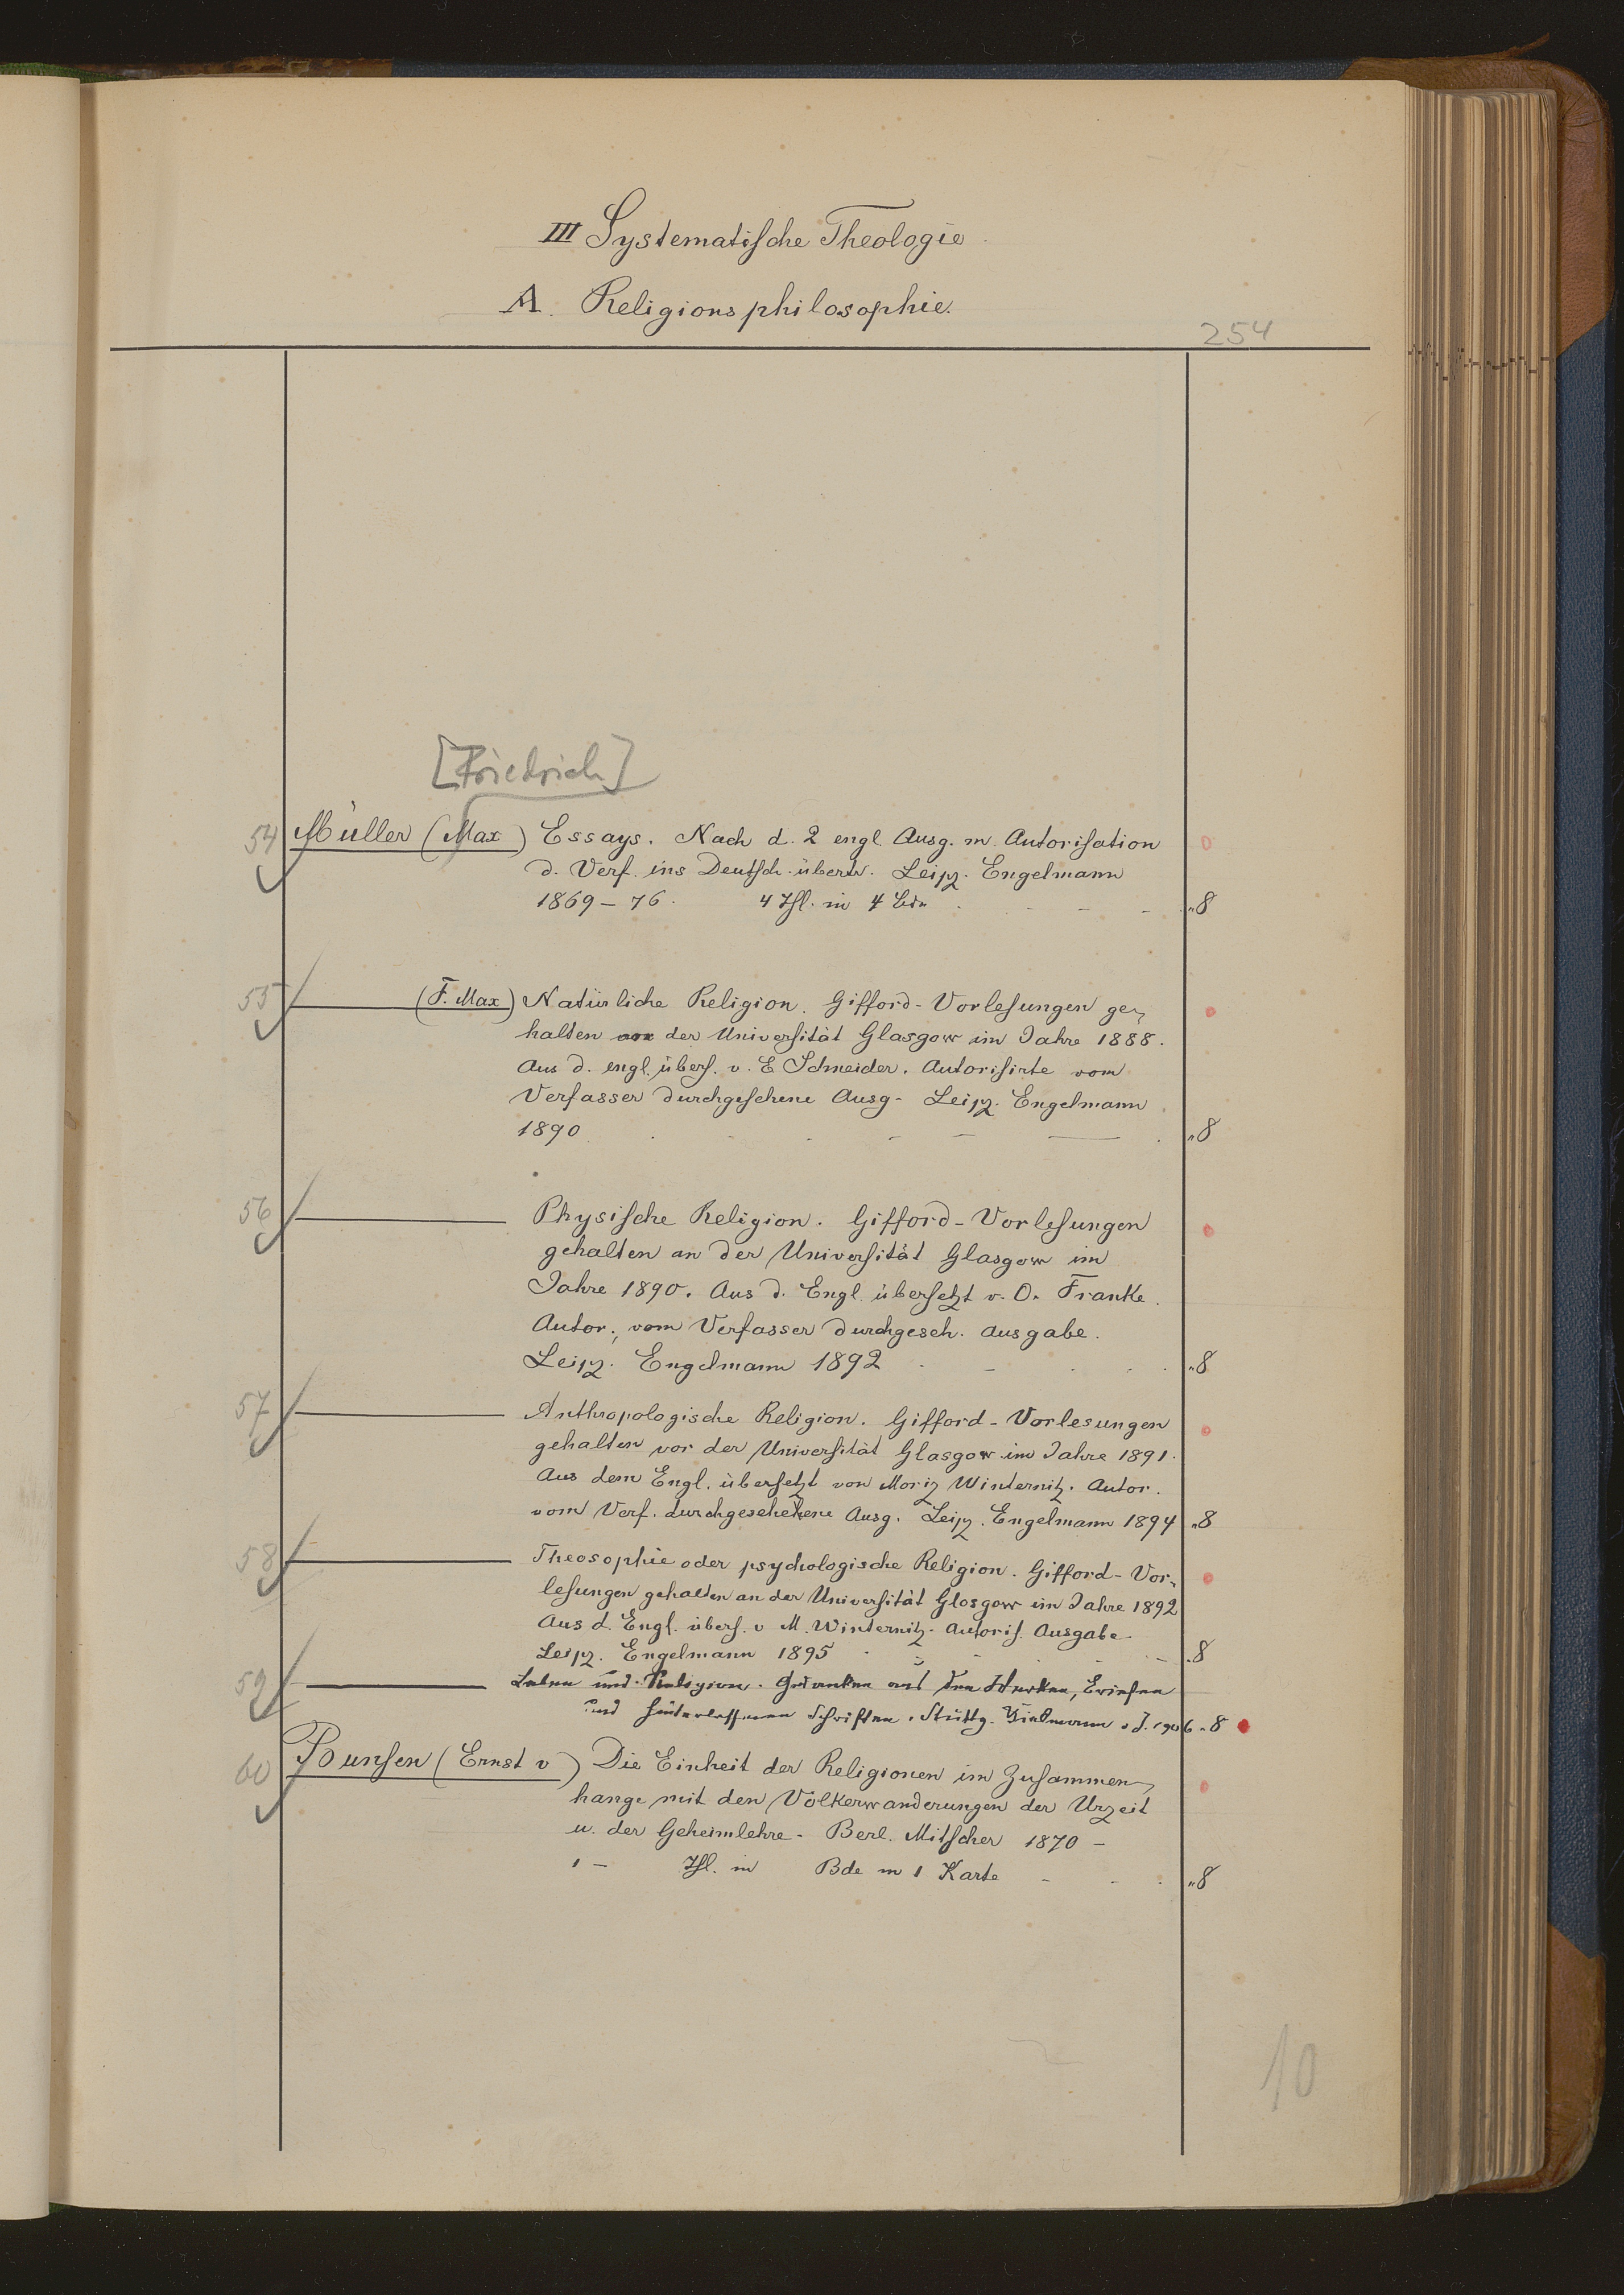 III Systematische Theologie.
A. Religionsphilosophie.
254
[Friedrich]
54 Müller (Max) Essays. Nach d. 2 engl. Ausg. m. Autorisation
d. Verf. ins Deutsch. übertr. Leipz. Engelmann
1869-76. 4 Thl. in 4 Bdn „8
55 (F. Max) Natürliche Religion. Gifford-Vorlesungen ge-
halten vor der Universität Glasgow im Jahre 1888.
Aus d. engl. übers. v. E Schneider. Autorisirte vom
Verfasser durchgesehene Ausg. Leipz. Engelmann
1890 „8
56 Physische Religion. Gifford-Vorlesungen
gehalten an der Universität Glasgow im
Jahre 1890. Aus d. Engl. übersetzt v. O. Franke.
Autor., vom Verfasser durchgeseh. Ausgabe.
Leipz. Engelmann 1892 „8
57 Anthropologische Religion. Gifford-Vorlesungen
gehalten vor der Universität Glasgow im Jahre 1891.
Aus dem Engl. übersetzt von Moriz Winternitz. Autor.
vom Verf. durchgesehehene Ausg. Leipz. Engelmann 1894 „8
58 Theosophie oder psychologische Religion. Gifford-Vor-
lesungen gehalten an der Universität Glosgow im Jahre 1892
Aus d. Engl. übers. v M. Winternitz. Autoris. Ausgabe
Leipz. Engelmann 1895 „8
59 Leben und Religion. Gedanken aus den Werken, Briefen
und hinterlassenen Schriften. Stuttg. Kielmann o. J. 1906 „8
60 Bunsen (Ernst v) Die Einheit der Religionen im Zusammen-
hange mit den Völkerwanderungen der Urzeit
u. der Geheimlehre. Berl. Mitscher 1870 -
1 - Thl. in Bde m 1 Karte „8
10